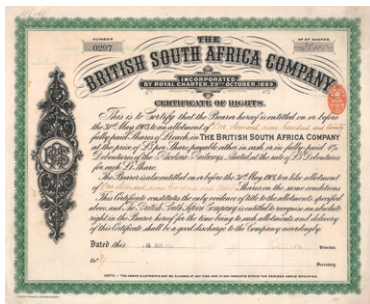 NUMBER
0297
Nº OF SHARES
THE
BRITISH SOUTH AFRICA COMPANY
INCORPORATED
BY ROYAL CHARTER, 29TH OCTOBER, 1889
CERTIFICATE OF RIGHTS.
This is to Certify that the Bearer hereof is entitled, on or before
the 31st May 1903, to an allotment of One thousand nine hundred and twenty
fully paid Shares of £1 each, in THE BRITISH SOUTH AFRICA COMPANY
at the price of £3 per Share, payable either in cash or in fully paid
Debentures of the Mashonaland Railways, Limited, at the rate of Debentures
for each £1 Share.
The Bearer is also entitled on or before the 31st May 1904, to a like allotment
of One thousand nine hundred and Shares on the same conditions
This Certificate constitutes the only evidence of title to the allotments specified
above, and The British South Africa Company is entitled to recognise an absolute
right in the Bearer hereof for the time being to such allotments and delivery
of this Certificate shall be a good discharge to the Company accordingly.
Dated this
Director
Secretary